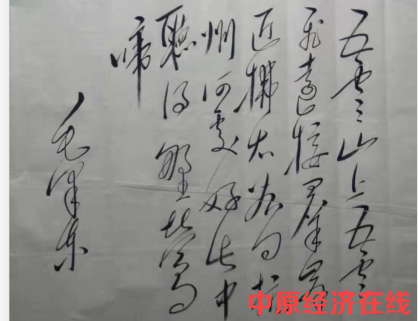 五云山上五云
飞远接群峰
近拂堤若问杭
州何处好此中
聽得野莺
啼
毛泽东
中原经济在线